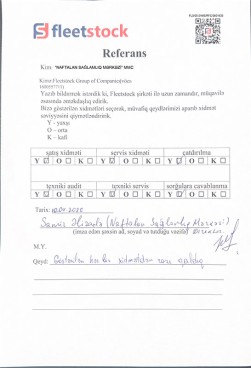 fleetstock
Referans
Kim: "NAFTALAN SAĞLAMLIQ MƏRKƏZİ" MMC
Kimin Fleetstock Group of Companies
Yazılı bildirmək istərdik ki, Fleetstock şirkəti ilə uzun zamandır, müqavilə
əsasında əməkdaşlıq edirik.
Bizə göstərilən xidmətləri seçərək, müvafiq qeydlərimizi aparıb xidmət
səviyyəsini qiymətləndirik.
Y - yaxşı
O - orta
K - kafi
satış xidməti servis xidməti çatdırılma
Y O K Y O K Y O K
texniki audit texniki servis sorğulara cavablanma
Y O K Y O K Y O K
Tarix:
(Naftalan Sağlamlıq Mərkəzi)
(imza edən şəxsin ad, soyad və tutduğu vəzifə) Direktor
M.Y.
Qeyd: Göstərilən xidmətdən razı qaldıq